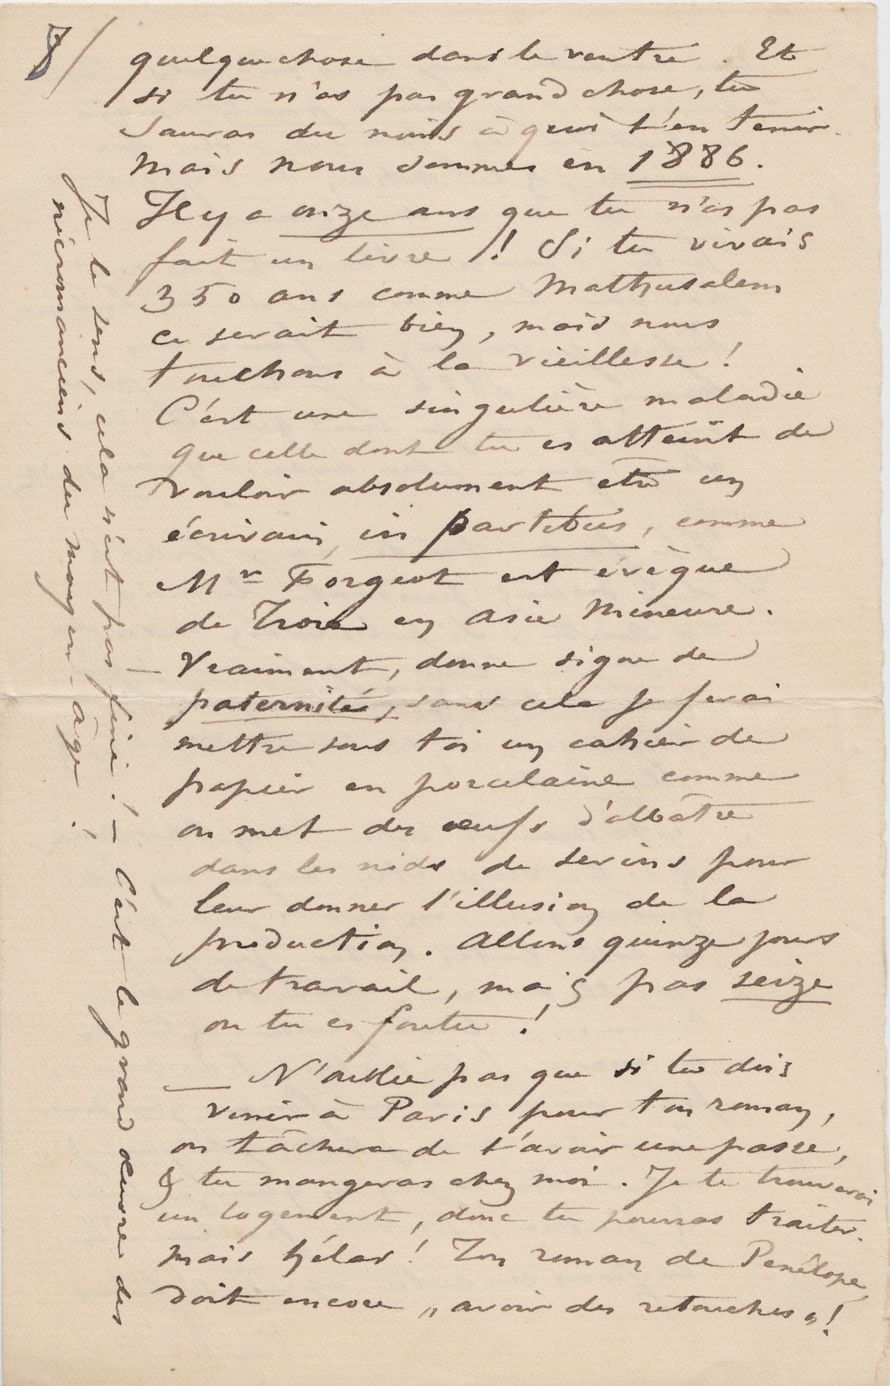 8/
quelque chose dans le ventre. Et
si tu n'as pas grand chose, tu
sauras du moins à quoi t'en tenir.
Mais nous sommes en 1886.
Il y a onze ans que tu n'as pas
fait un livre ! Si tu vivais
350 ans comme Mathusalem
ce serait bien, mais nous
touchons à la vieillesse !
C'est une singulière maladie
que celle dont tu es atteint de
vouloir absolument être un
écrivain, in partibus, comme
Mr Forgeot est évèque
de Troie en Asie Mineure.
— Vraiment, donne signe de
paternité, sans cela je ferai
mettre sous toi un cahier de
papier en porcelaine comme
on met des œufs d'albâtre
dans les nids de serins pour
leur donner l'illusion de la
production. Allons quinze jours
de travail, mais pas seize
ou tu es foutu !
— N'oublie pas que si tu dois
venir à Paris pour ton roman,
on tâchera de t'avoir une passe,
& tu mangeras chez moi. Je te trouverai
un logement, donc tu pourras traiter.
Mais hélas ! Ton roman de Penélope
doit encore „avoir des retouches„!
Je le sens, cela n'est pas fini ! — C'est le grand œuvre des
nécromanciens du moyen-âge !